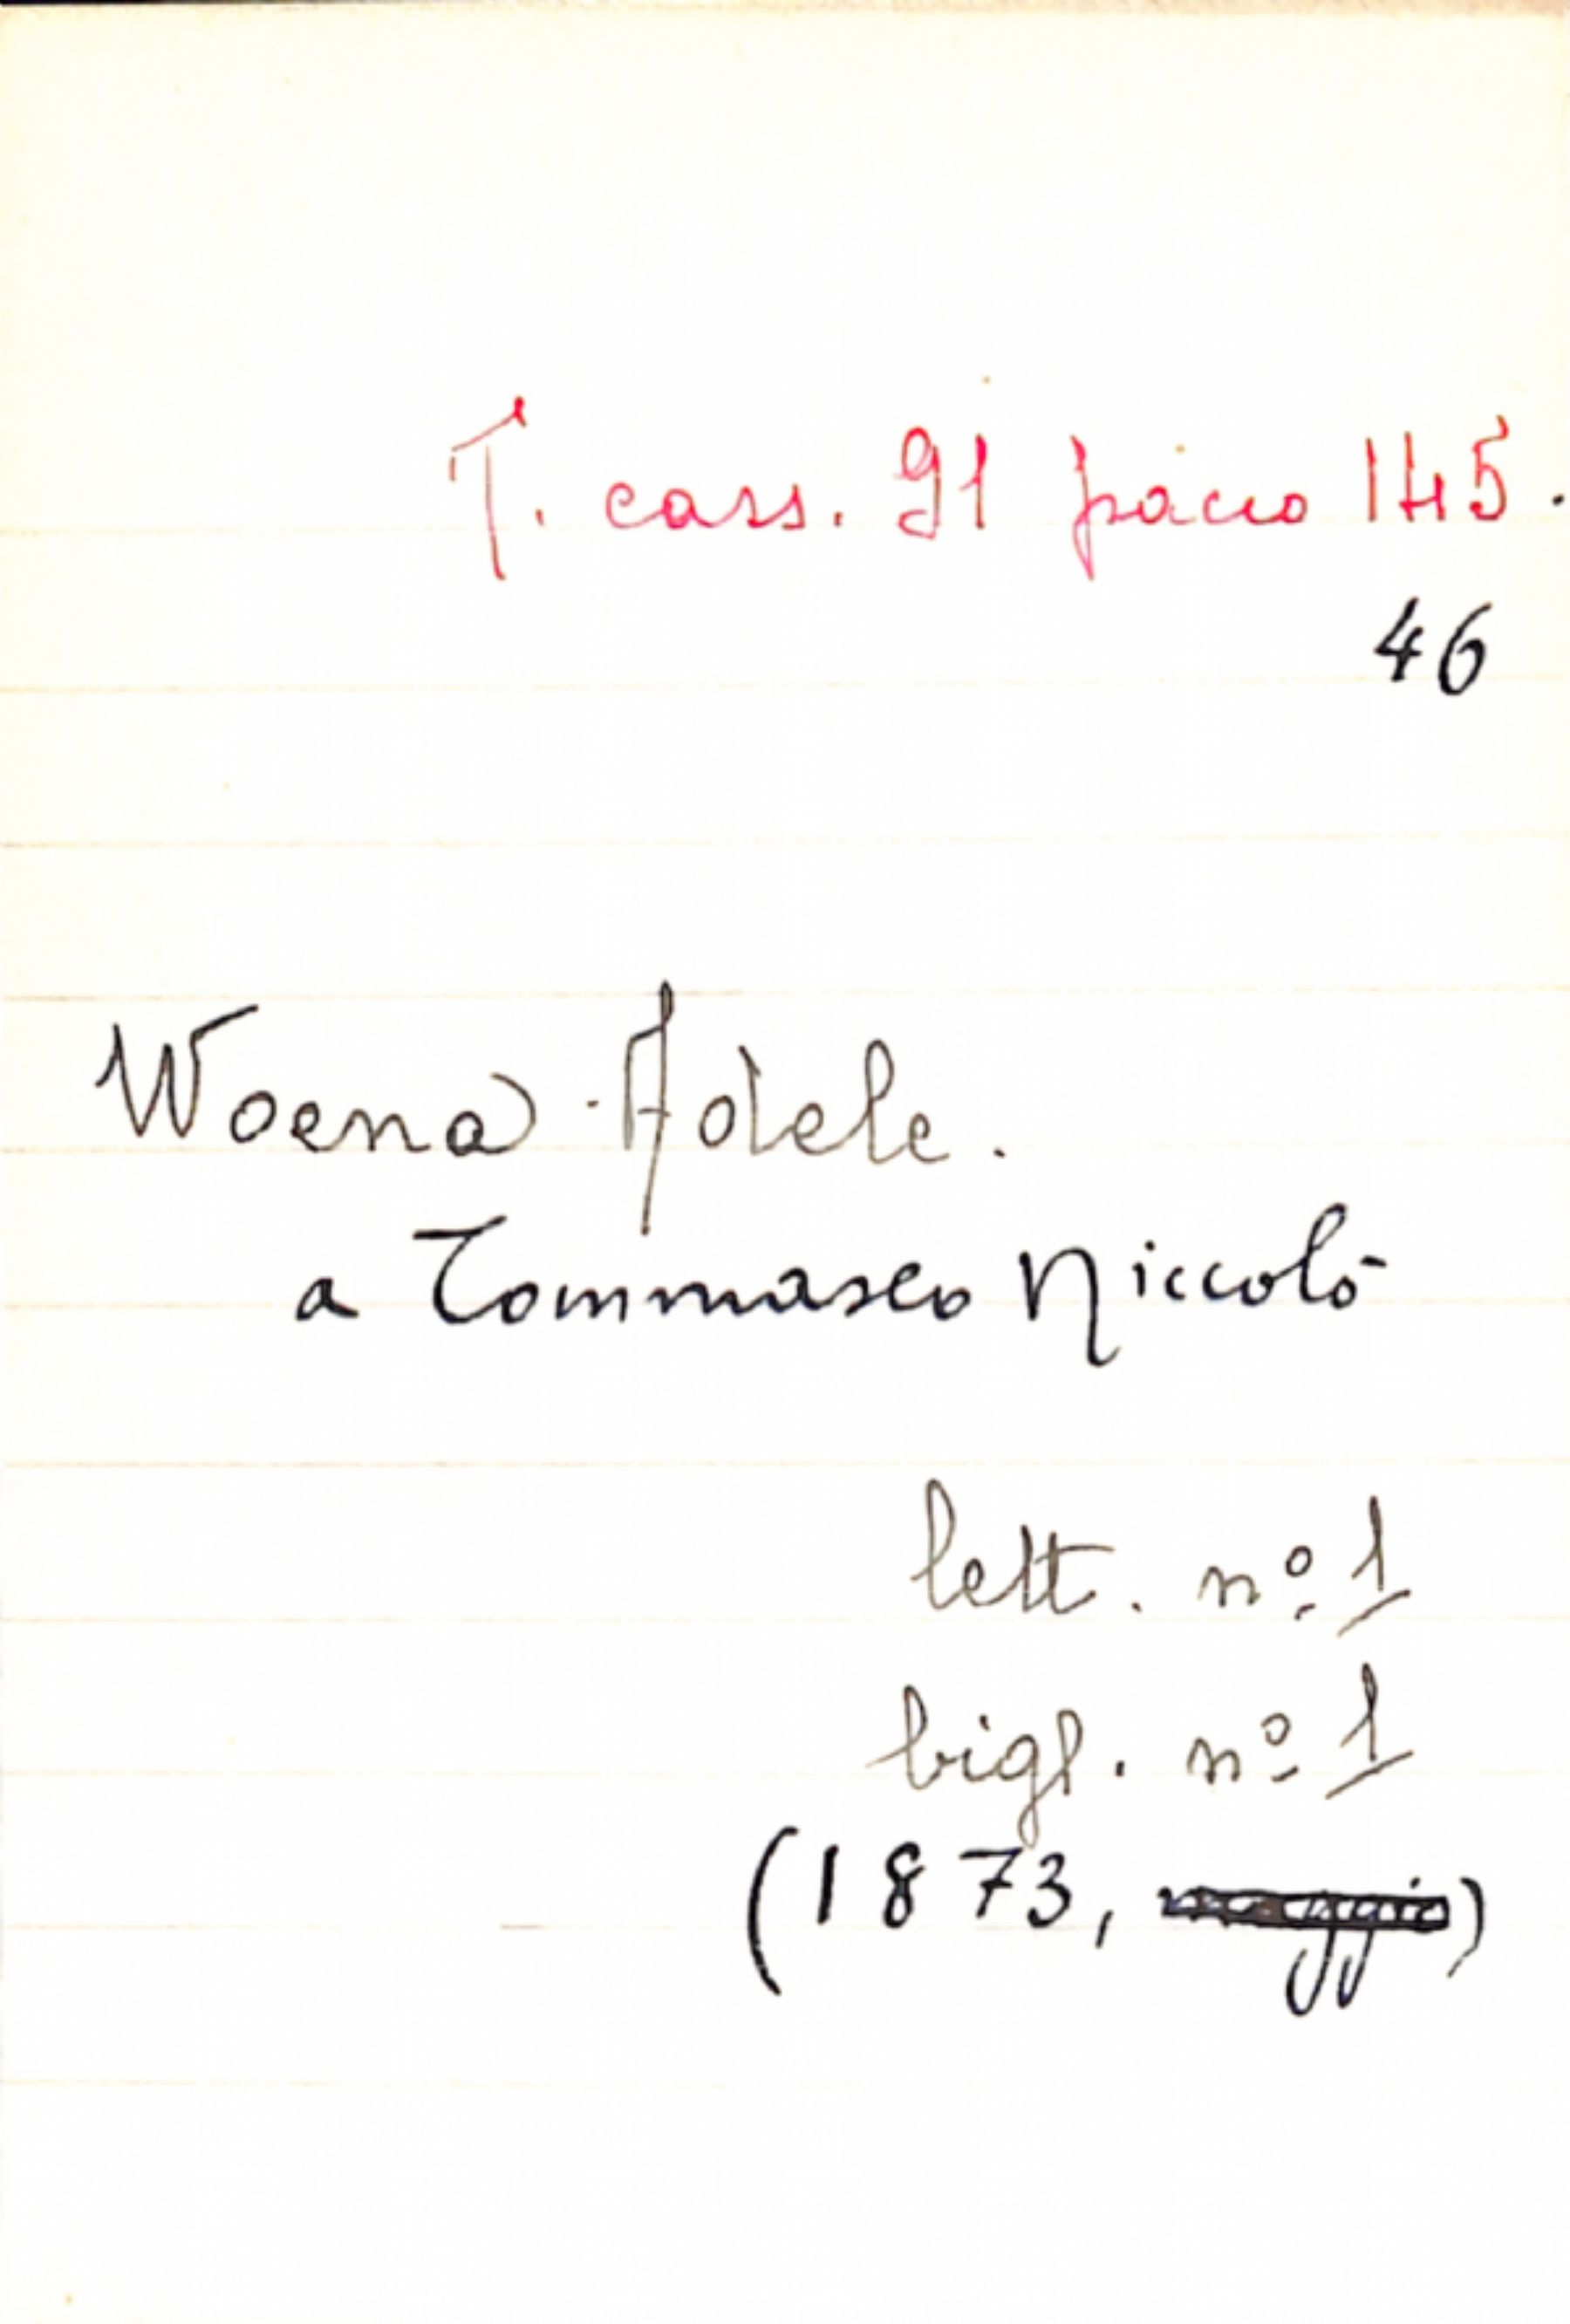 T. cass. 91 pacco 145.
46
Woena Adele.
a Tommaseo Niccolò
lett. nº 1
bigl. nº 1
(1873, maggio)